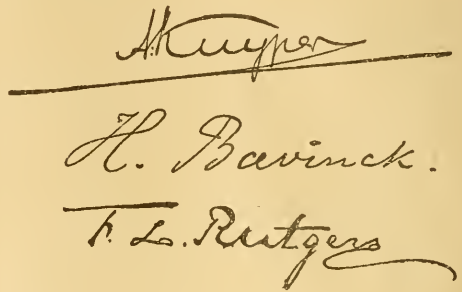 A. Kuyper
H. Bavinck.
F. L. Rutgers